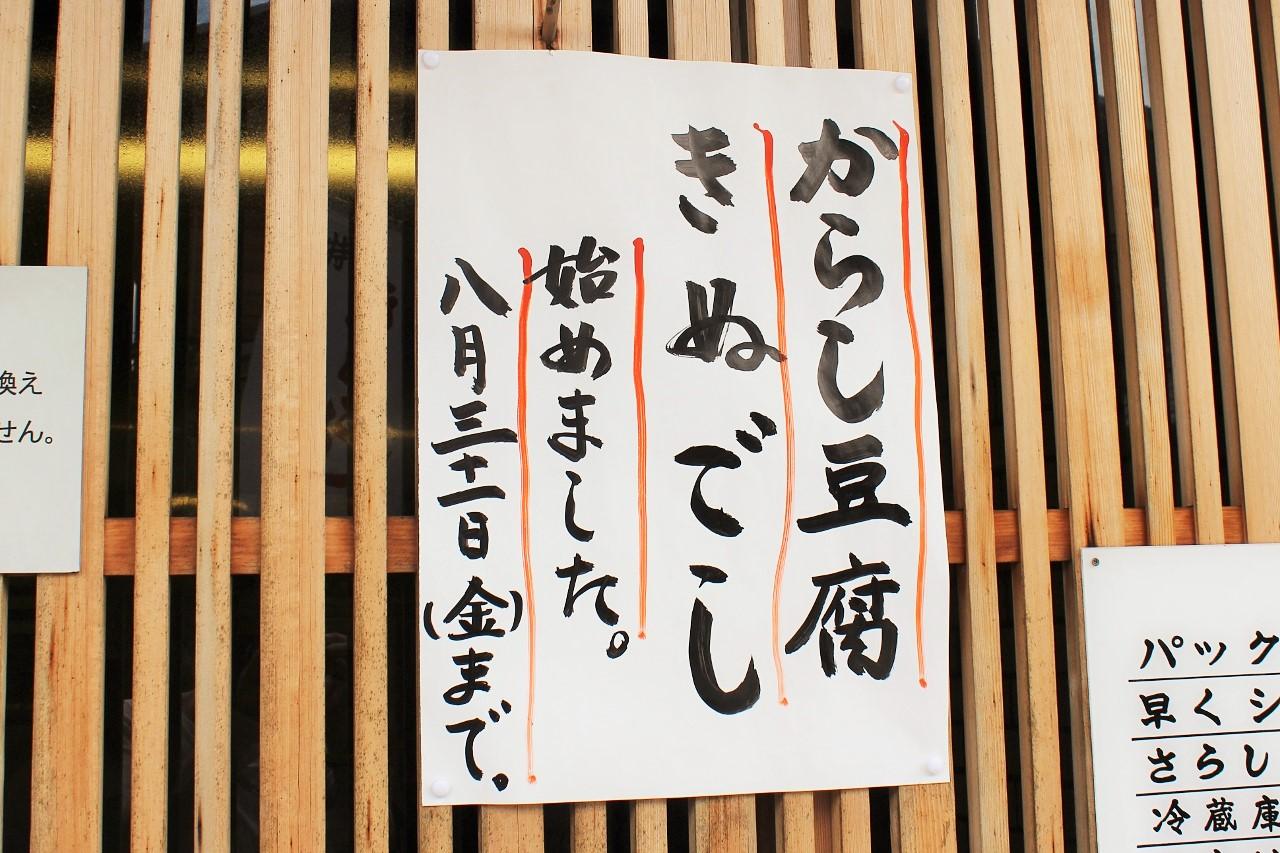 からし豆腐
きぬでし
始めました。
八月三十一日(金)まで。
換え
せん。
パック
早くシ
さらし
冷蔵庫